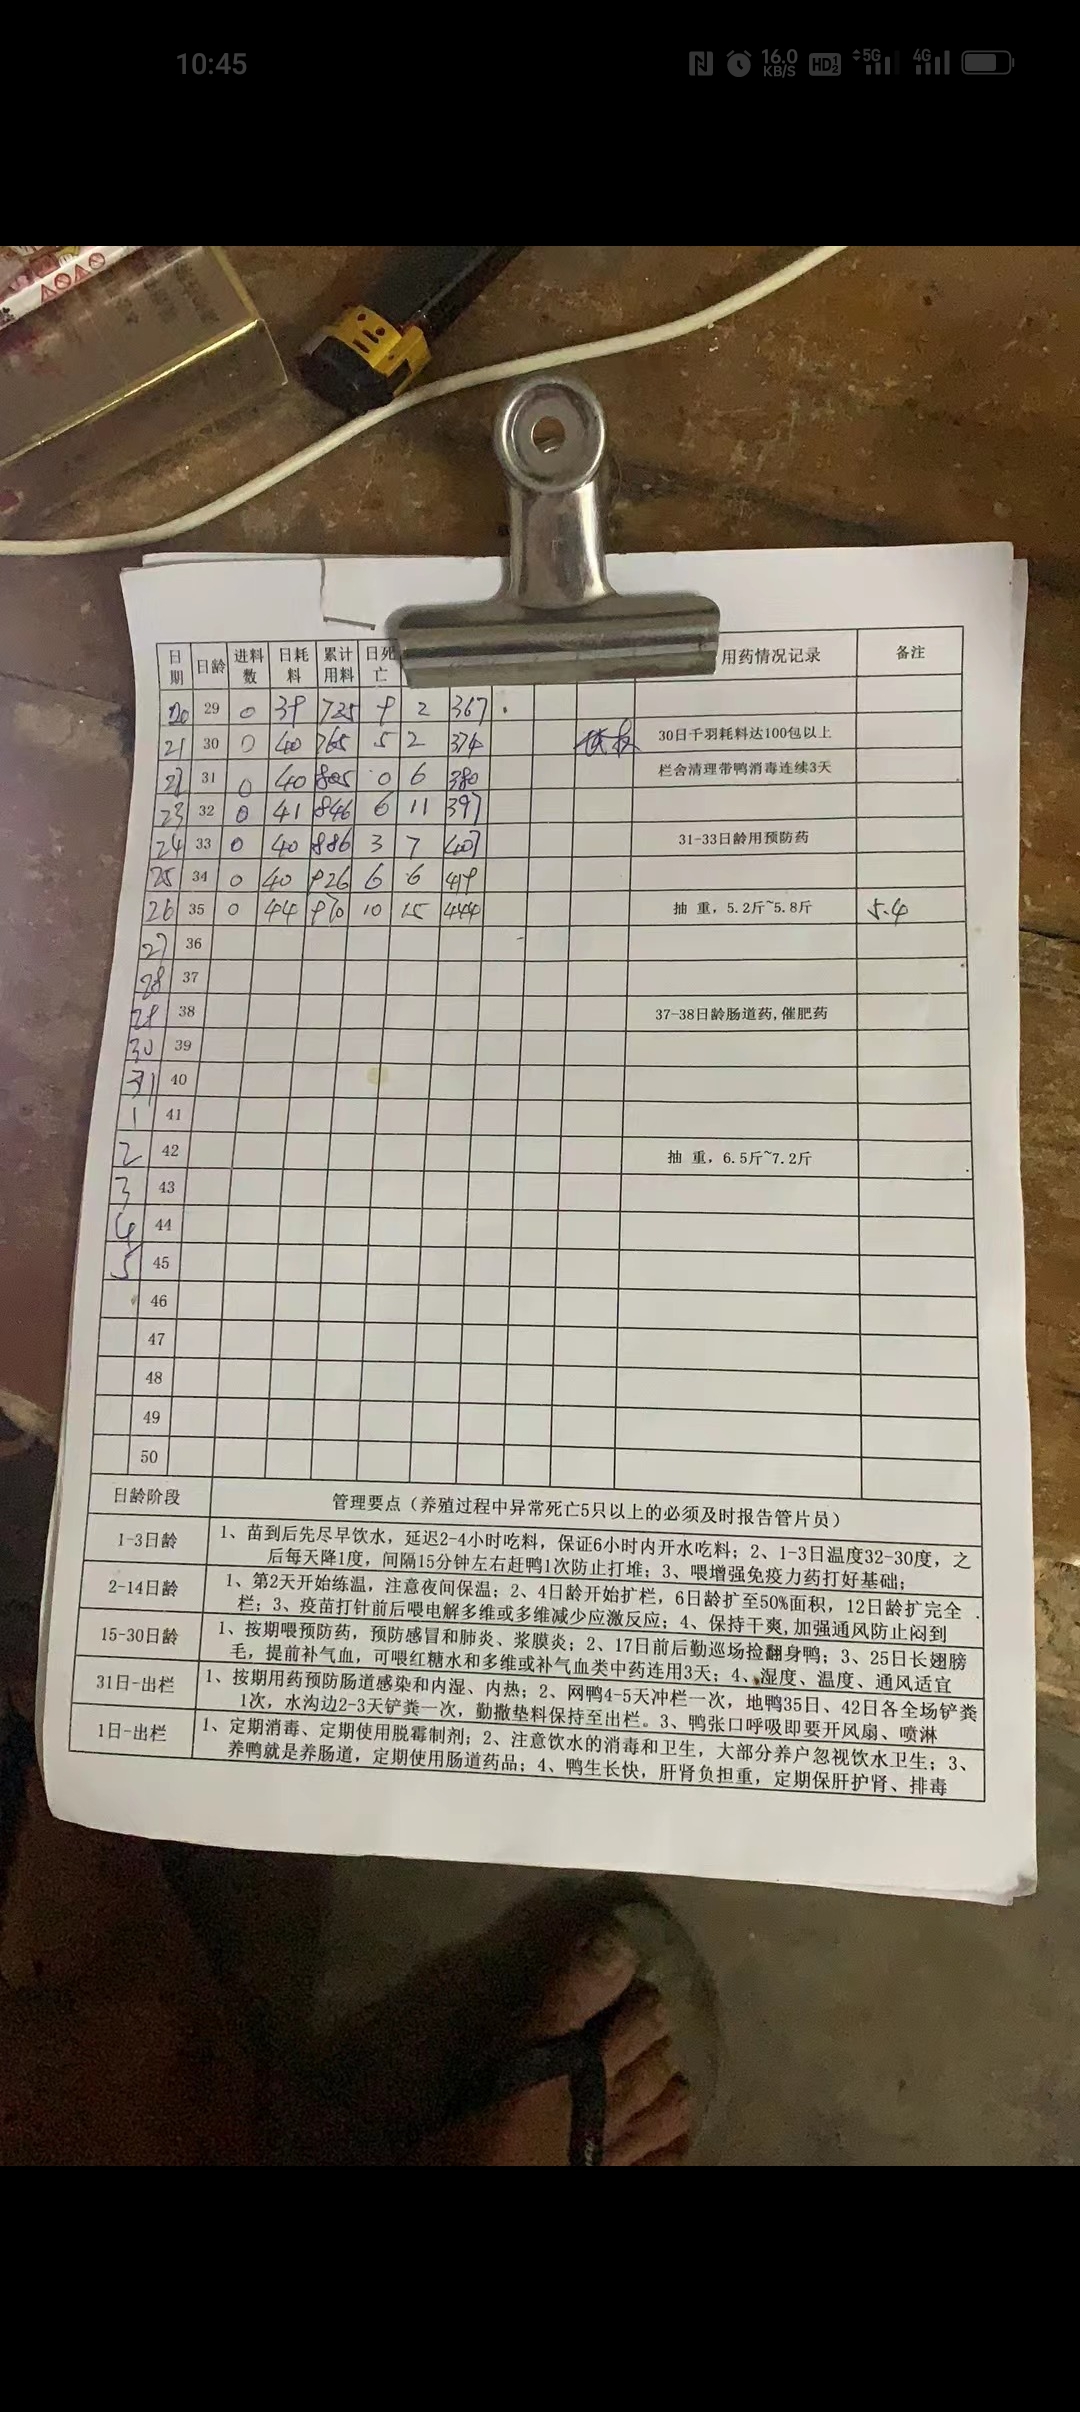 10:45
16.0 KB/S HD 5G 4G
日期 日龄 进料数 日耗料 累计用料 日死亡 用药情况记录 备注
20 29 0 39 725 9 2 367
21 30 0 40 765 5 2 374 30日千羽耗料达100包以上
22 31 0 40 805 0 6 380 栏舍清理带鸭消毒连续3天
23 32 0 41 846 6 11 397
24 33 0 40 886 3 7 407 31-33日龄用预防药
25 34 0 40 926 6 6 419
26 35 0 44 970 10 15 444 抽 重，5.2斤~5.8斤 5.4
27 36
28 37
29 38 37-38日龄肠道药,催肥药
30 39
31 40
1 41
2 42 抽 重，6.5斤~7.2斤
3 43
4 44
5 45
46
47
48
49
50
日龄阶段 管理要点（养殖过程中异常死亡5只以上的必须及时报告管片员）
1-3日龄 1、苗到后先尽早饮水，延迟2-4小时吃料，保证6小时内开水吃料；2、1-3日温度32-30度，之
后每天降1度，间隔15分钟左右赶鸭1次防止打堆；3、喂增强免疫力药打好基础；
2-14日龄 1、第2天开始练温，注意夜间保温；2、4日龄开始扩栏，6日龄扩至50%面积，12日龄扩完全
栏；3、疫苗打针前后喂电解多维或多维减少应激反应；4、保持干爽,加强通风防止闷到
15-30日龄 1、按期喂预防药，预防感冒和肺炎、浆膜炎；2、17日前后勤巡场捡翻身鸭；3、25日长翅膀
毛，提前补气血，可喂红糖水和多维或补气血类中药连用3天；4、湿度、温度、通风适宜
31日-出栏 1、按期用药预防肠道感染和内湿、内热；2、网鸭4-5天冲栏一次，地鸭35日、42日各全场铲粪
1次，水沟边2-3天铲粪一次，勤撒垫料保持至出栏。3、鸭张口呼吸即要开风扇、喷淋
1日-出栏 1、定期消毒、定期使用脱霉制剂；2、注意饮水的消毒和卫生，大部分养户忽视饮水卫生；3、
养鸭就是养肠道，定期使用肠道药品；4、鸭生长快，肝肾负担重，定期保肝护肾、排毒